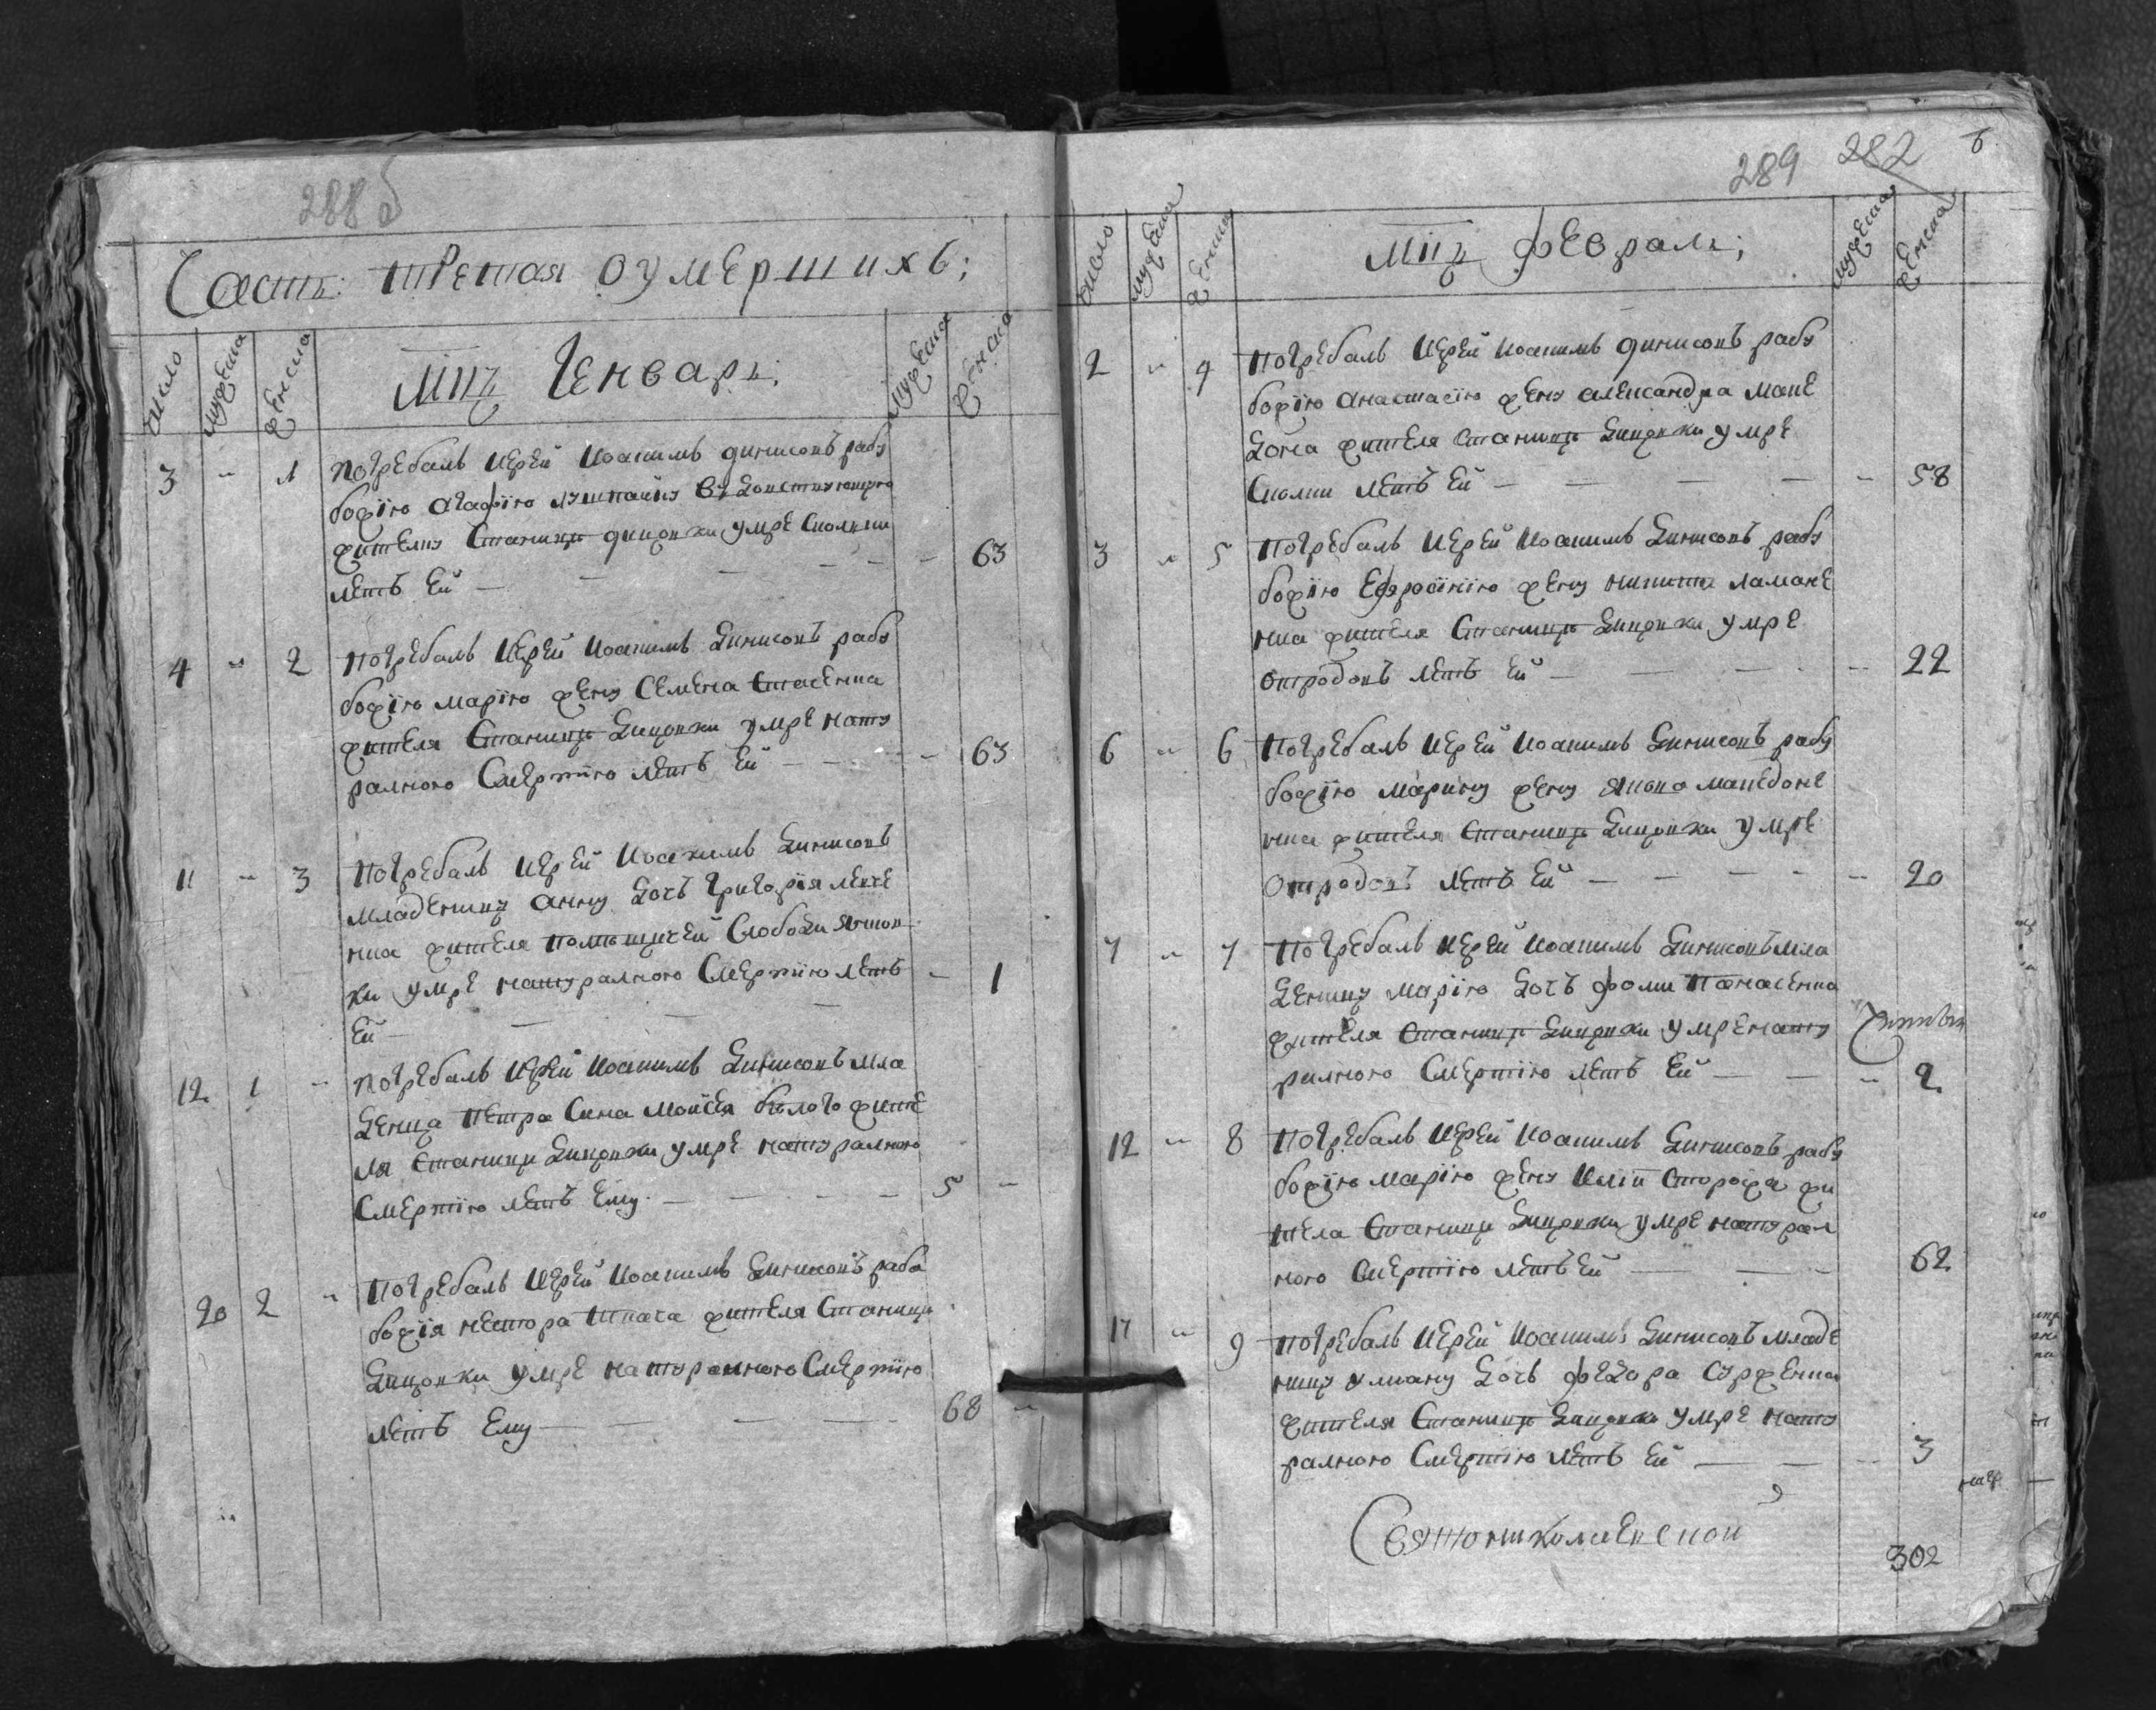 288 б
Часть третая оумершихъ;
число мужеска женска
Мцъ Генварь;
мужеска женска
3 " 1 погребалъ иерей иоакимъ динисовъ рабу
божїю агафїю
жителку станици дицовки умре сколкии
летъ ей — 63
4 " 2 погребалъ иерей иоакимъ динисовъ рабу
божїю марїю жену семена стасенка
жителя станици дицовки умре нату
ралною смертїю летъ ей — 63
11 " 3 погребалъ иерей иоакимъ динисовъ
младеницу анну дочъ григорїя левче
нка жителя помѣщичей слободи
ки умре натуралною смертїю летъ 1
ей —
12 1 " погребалъ иерей иоакимъ динисовъ мла
денца петра сина мойсея билого жите
ля станици дицовки умре натуралною
смертїю летъ ему — 5 "
20 2 " погребалъ иерей иоакимъ динисовъ раба
божїя нестора ткача жителя станици
дицовки умре натуралною смертїю
летъ ему — 68 "
289 282
число мужеска женска
Мцъ февраль;
мужеска женска
2 " 4 погребалъ иерей иоакимъ динисовъ рабу
божїю анастасїю жену александра маке
донка жителя станици дицовки умре
сколки летъ ей — 58
3 " 5 погребалъ иерей иоакимъ динисовъ рабу
божїю ефросїнїю жену никити ламане
нка жителя станици дицовки умре
отродовъ летъ ей — 22
6 " 6 погребалъ иерей иоакимъ динисовъ рабу
божїю марину жену якова македоне
нка жителя станици дицовки умре
отродовъ летъ ей — 20
7 " 7 погребалъ иерей иоакимъ динисовъ мла
деницу марїю дочъ фоми панасенка
жителя станици дицовки умре нату
ралною смертїю летъ ей — " 2
12 " 8 погребалъ иерей иоакимъ динисовъ рабу
божїю марїю жену илїи сторожа жи
тела станици дицовки умре натурал
ною смертїю летъ ей — 62
17 " 9 погребалъ иерей иоакимъ динисовъ младе
ницу улиану дочъ федора сурженка
жителя станици дицовки умре нату
ралною смертїю летъ ей — " 3
Святониколаевской
302